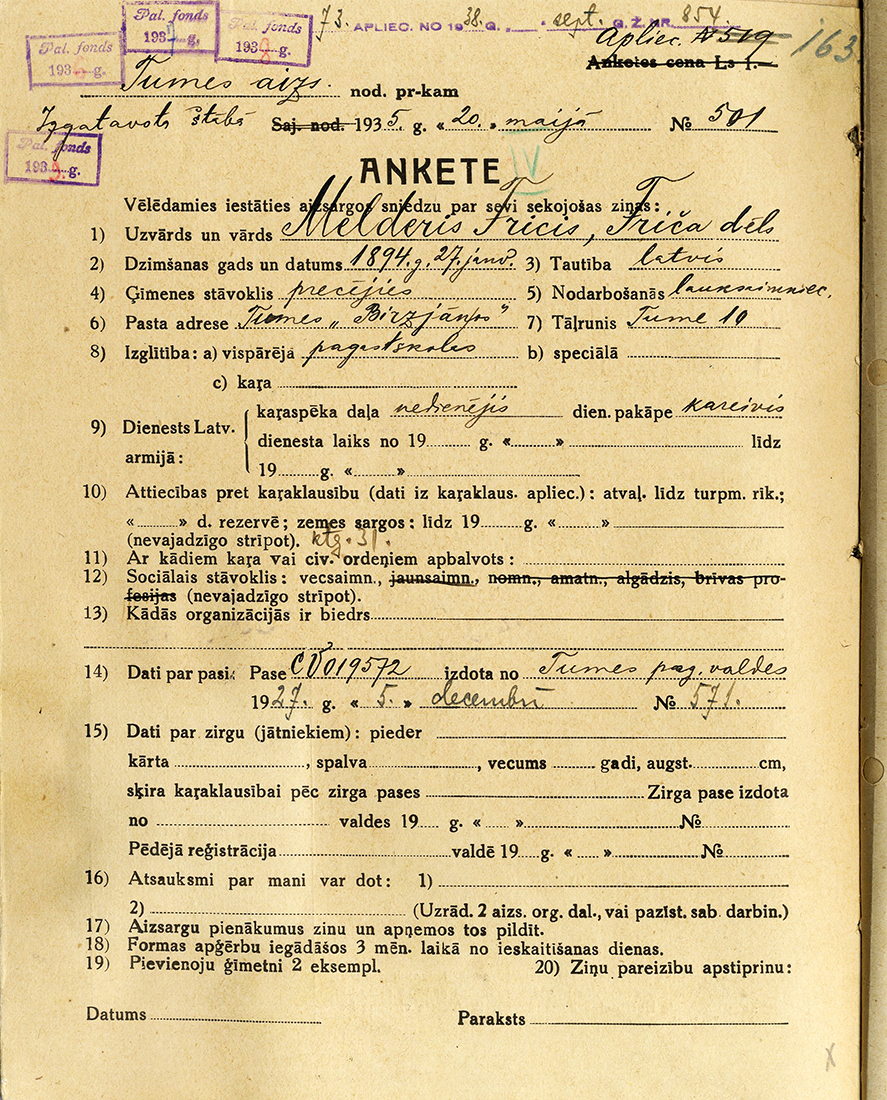 Pal. fonds
1937 g.
Pal. fonds
193 g.
Pal. fonds
193 g.
73. APLIEC. NO 1938. G. „ — " sept. G. Ž. NR. 854
Apliec. № 519
163
Anketes cena Ls 1.—
Tumes aizs. nod. pr-kam
Izgatavots štābā Saj. nod. 1935. g. « 20. » maijā № 501
Pal. fonds
193 g.
ANKETE IV
Vēlēdamies iestāties aizsargos sniedzu par sevi sekojošas ziņas:
1) Uzvārds un vārds Melderis Fricis, Friča dēls
2) Dzimšanas gads un datums 1894. g. 27. janv. 3) Tautība latvis
4) Ģimenes stāvoklis precējies 5) Nodarbošanās lauksaimniec.
6) Pasta adrese Tumes „Birzjāņos" 7) Tāļrunis Tume 10
8) Izglītība: a) vispārējā pagastskolas b) speciālā
c) kaŗa
9) Dienests Latv. armijā: kaŗaspēka daļa nedienējis dien. pakāpe kareivis
dienesta laiks no 19 g. « » līdz
19 g. « »
10) Attiecības pret kaŗaklausību (dati iz kaŗaklaus. apliec.): atvaļ. līdz turpm. rīk.;
« » d. rezervē; zemes sargos: līdz 19 g. « »
(nevajadzīgo strīpot). ktg. 31.
11) Ar kādiem kaŗa vai civ. ordeņiem apbalvots:
12) Sociālais stāvoklis: vecsaimn., jaunsaimn., nomn., amatn., algādzis, brīvas pro-
fesijas (nevajadzīgo strīpot).
13) Kādās organizācijās ir biedrs
14) Dati par pasi: Pase CV 019572 izdota no Tumes pag. valdes
1927. g. « 5. » decembrī № 571.
15) Dati par zirgu (jātniekiem): pieder
kārta , spalva , vecums gadi, augst. cm,
šķira kaŗaklausībai pēc zirga pases Zirga pase izdota
no valdes 19 g. « » №
Pēdējā reģistrācija valdē 19 g. « » №
16) Atsauksmi par mani var dot: 1)
2) (Uzrād. 2 aizs. org. dal., vai pazīst. sab. darbin.)
17) Aizsargu pienākumus zinu un apņemos tos pildīt.
18) Formas apģērbu iegādāšos 3 mēn. laikā no ieskaitīšanas dienas.
19) Pievienoju ģīmetni 2 eksempl. 20) Ziņu pareizību apstiprinu:
Datums Paraksts